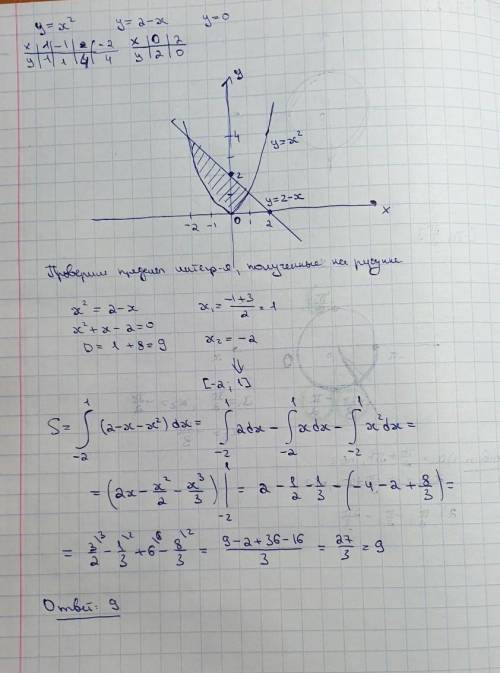 y = x² y = 2-x y=0
x | 1 | -1 | 2 | -2 x | 0 | 2
y | 1 | 1 | 4 | 4 y | 2 | 0
y
4
y=x²
2
y=2-x
-2 -1 0 1 2 x
Проверим пределы интегр-я, полученные на рисунке
x² = 2-x x₁ = (-1+3)/2 = 1
x²+x-2=0 x₂ = -2
D = 1+8=9
⇓
[-2; 1]
S = ∫₋₂¹ (2-x-x²)dx = ∫₋₂¹ 2dx - ∫₋₂¹ xdx - ∫₋₂¹ x²dx =
= (2x - x²/2 - x³/3) |₋₂¹ = 2 - 1/2 - 1/3 - (-4-2+8/3) =
= 3/2\³ - 1/3\² + 6\⁶ - 8/3\² = (9-2+36-16)/3 = 27/3 = 9
Ответ: 9